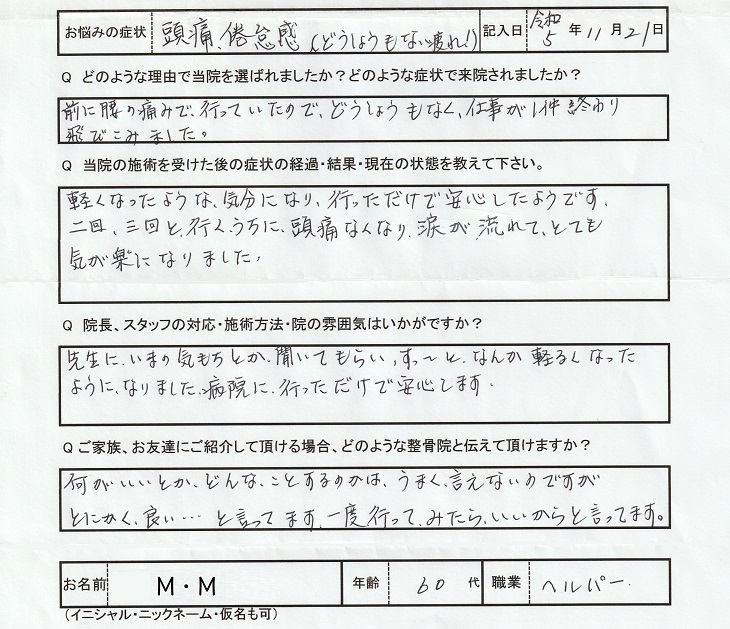 お悩みの症状 頭痛、倦怠感 (どうしょうもない疲れ!) 記入日 令和5年11月21日
Q どのような理由で当院を選ばれましたか？どのような症状で来院されましたか？
前に腰の痛みで、行っていたので、どうしょうもなく、仕事が1件終わり
飛びこみました。
Q 当院の施術を受けた後の症状の経過・結果・現在の状態を教えて下さい。
軽くなったような、気分になり、行っただけで安心したようです、
二回、三回と、行くうちに、頭痛なくなり、涙が流れて、とても
気が楽になりました、
Q 院長、スタッフの対応・施術方法・院の雰囲気はいかがですか？
先生に、いまの気もちとか、聞いてもらい、すっ～と、なんか軽るくなった
ように、なりました、病院に、行っただけで安心します.
Qご家族、お友達にご紹介して頂ける場合、どのような整骨院と伝えて頂けますか？
何がいいとか、どんな、ことするのかは、うまく、言えないのですが
とにかく、良い… と言ってます、一度行って、みたら、いいからと言ってます。
お名前 M・M 年齢 60 代 職業 ヘルパー.
（イニシャル・ニックネーム・仮名も可）